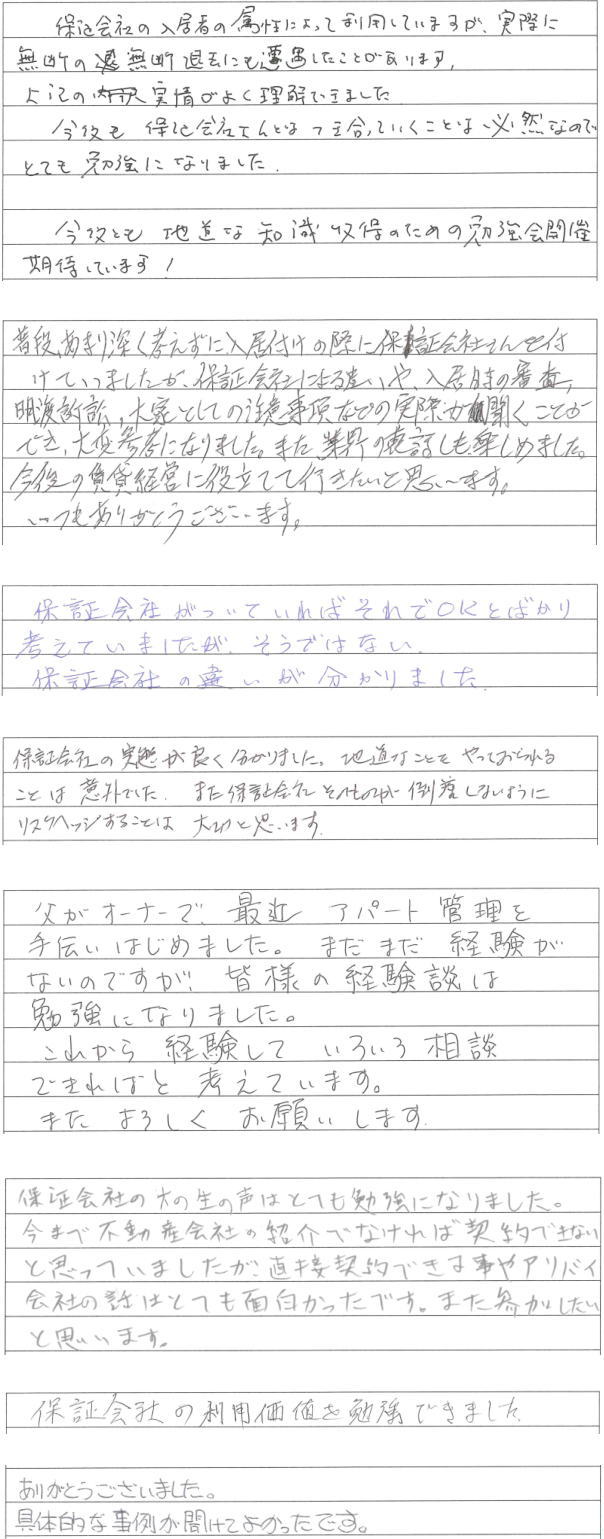 保証会社の入居者の属性によって利用していますが、実際に
無断の 無断退去にも遭遇したことがあります。
上記の 実情がよく理解できました
今後も 保証会社さんとはつき合っていくことは必然なので
とても 勉強になりました。
今後とも 地道な知識収得のための勉強会開催
期待しています!
普段、あまり深く考えずに入居付けの際に保証会社さんを付
けていましたが、保証会社による違いや、入居時の審査、
明渡訴訟、大家としての注意事項などの実際が聞くことが
でき、大変参考になりました。また業界の裏話しも楽しめました。
今後の賃貸経営に役立てて行きたいと思います。
いつもありがとうございます。
保証会社がついていればそれでOKとばかり
考えていましたが、そうではない。
保証会社の違いが分かりました。
保証会社の実態が良く分かりました。地道なことを やっておられる
ことは 意外でした。また保証会社そのものが倒産しないように
リスクヘッジすることは 大切と思います。
父がオーナーで、最近 アパート管理を
手伝いはじめました。まだまだ 経験が
ないのですが、皆様の経験談は
勉強になりました。
これから 経験して いろいろ相談
できればと 考えています。
また よろしく お願いします。
保証会社の方の生の声はとても勉強になりました。
今まで不動産会社の紹介でなければ契約できない
と思っていましたが、直接契約できる事やアリバイ
会社の話はとても面白かったです。また参加したい
と思います。
保証会社の利用価値を勉強できました
ありがとうございました。
具体的な事例が聞けてよかったです。